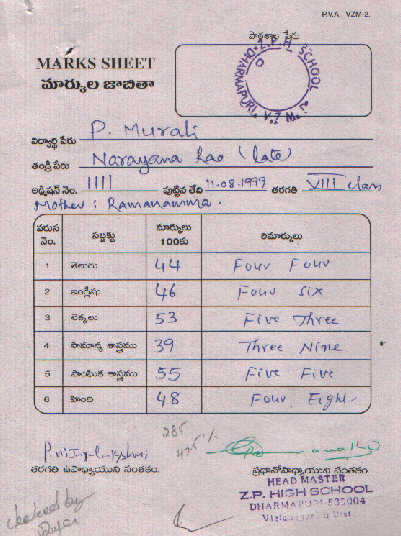 P.V.A. VZM-2.
పాఠశాల పేరు
Z.P.H. SCHOOL
DHARMAPURI, V.Z.M.
MARKS SHEET
మార్కుల జాబితా
విద్యార్థి పేరు P. Murali
తండ్రి పేరు Narayana Rao (Late)
అడ్మిషన్ నెం. 1111 పుట్టిన తేది 11-08-1999 తరగతి VIII class
Mother : Ramanamma.
వరుస నెం. సబ్జక్టు మార్కులు 100కు రిమార్కులు
1 తెలుగు 44 Four Four
2 ఇంగ్లీషు 46 Four Six
3 లెక్కలు 53 Five Three
4 సామాన్య శాస్త్రము 39 Three Nine
5 సాంఘిక శాస్త్రము 55 Five Five
6 హింది 48 Four Eight
285
47.5%
తరగతి ఉపాధ్యాయుని సంతకం. ప్రధానోపాధ్యాయుని సంతకం
HEAD MASTER
Z.P. HIGH SCHOOL
DHARMAPURI-535004
Vizianagaram Dist.
checked by